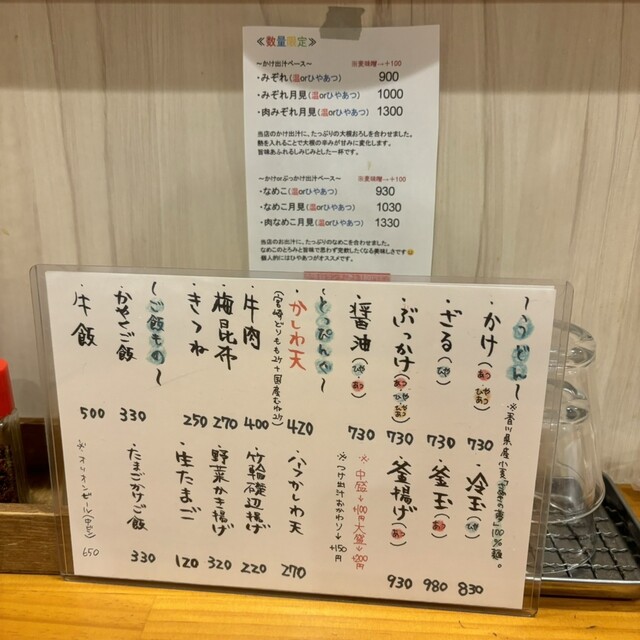 ≪数量限定≫
〜かけ出汁ベース〜 ※麦味噌→+100
・みぞれ(温orひやあつ) 900
・みぞれ月見(温orひやあつ) 1000
・肉みぞれ月見(温orひやあつ) 1300
当店のかけ出汁に、たっぷりの大根おろしを合わせました。
熱を入れることで大根の辛みが甘みに変化します。
旨味あふれるしみじみとした一杯です。
〜かけorぶっかけ出汁ベース〜 ※麦味噌→+100
・なめこ(温orひやあつ) 930
・なめこ月見(温orひやあつ) 1030
・肉なめこ月見(温orひやあつ) 1330
当店のお出汁に、たっぷりのなめこを合わせました。
なめこのとろみと旨味で思わず完飲したくなる美味しさです😄
個人的にはひやあつがオススメです。
〜うどん〜 ※香川県産小麦「さぬきの夢」100%麺。
・かけ(あつ ひやあつ) 730
・ざる(ひや) 730
・ぶっかけ(あつ・ひや ひやあつ) 730
・醤油(ひや・あつ) 730
・冷玉(ひや) 830
・釜玉(あつ) 980
・釜揚げ(あつ) 930
※中盛→+100円 大盛→+200円
※つけ出汁おかわり→+150円
〜とっぴんぐ〜
・かしわ天 420
(宮崎どりもも2ケ+国産むね2ケ)
・牛肉 400
・梅昆布 270
・きつね 250
・ハーフかしわ天 270
・竹輪磯辺揚げ 220
・野菜かき揚げ 320
・生たまご 120
〜ご飯もの〜
・かやくご飯 330
・牛飯 500
・たまごかけご飯 330
※オリオンビール(中ビン) 650